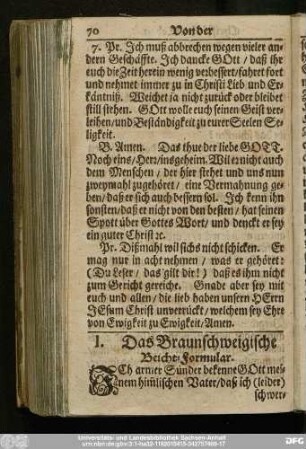 70 Von der
7. Pr. Ich muß abbrechen wegen vieler an-
dern Geschäffte. Ich dancke GOtt / daß ihr
euch die Zeit herein wenig verbessert / fahret fort
und nehmet immer zu in Christi Lieb und Er-
käntniß. Weichet ja nicht zurück oder bleibet
still stehen. GOtt wolle euch seinen Geist ver-
leihen / und Beständigkeit zu eurer Seelen Se-
ligkeit.
B. Amen. Das thue der liebe GOTT.
Noch eins / Herr / insgeheim. Wil er nicht auch
dem Menschen / der hier stehet und uns nun
zweymahl zugehöret / eine Vermahnung ge-
ben / daß er sich auch bessern sol. Ich kenn ihn
sonsten / daß er nicht von den besten / hat seinen
Spott über Gottes Wort / und denckt er sey
ein guter Christ ꝛc.
Pr. Dißmahl wil sichs nicht schicken. Er
mag nur in acht nehmen / was er gehöret:
(Du Leser / das gilt dir!) daß es ihm nicht
zum Gericht gereiche. Gnade aber sey mit
euch und allen / die lieb haben unsern HErrn
JEsum Christ unverrückt / welchem sey Ehre
von Ewigkeit zu Ewigkeit / Amen.
1. Das Braunschweigische
Beicht-Formular.
ICh armer Sünder bekenne GOtt mei-
nem himlischen Vater / daß ich (leider)
schwer-
Universitäts- und Landesbibliothek Sachsen-Anhalt